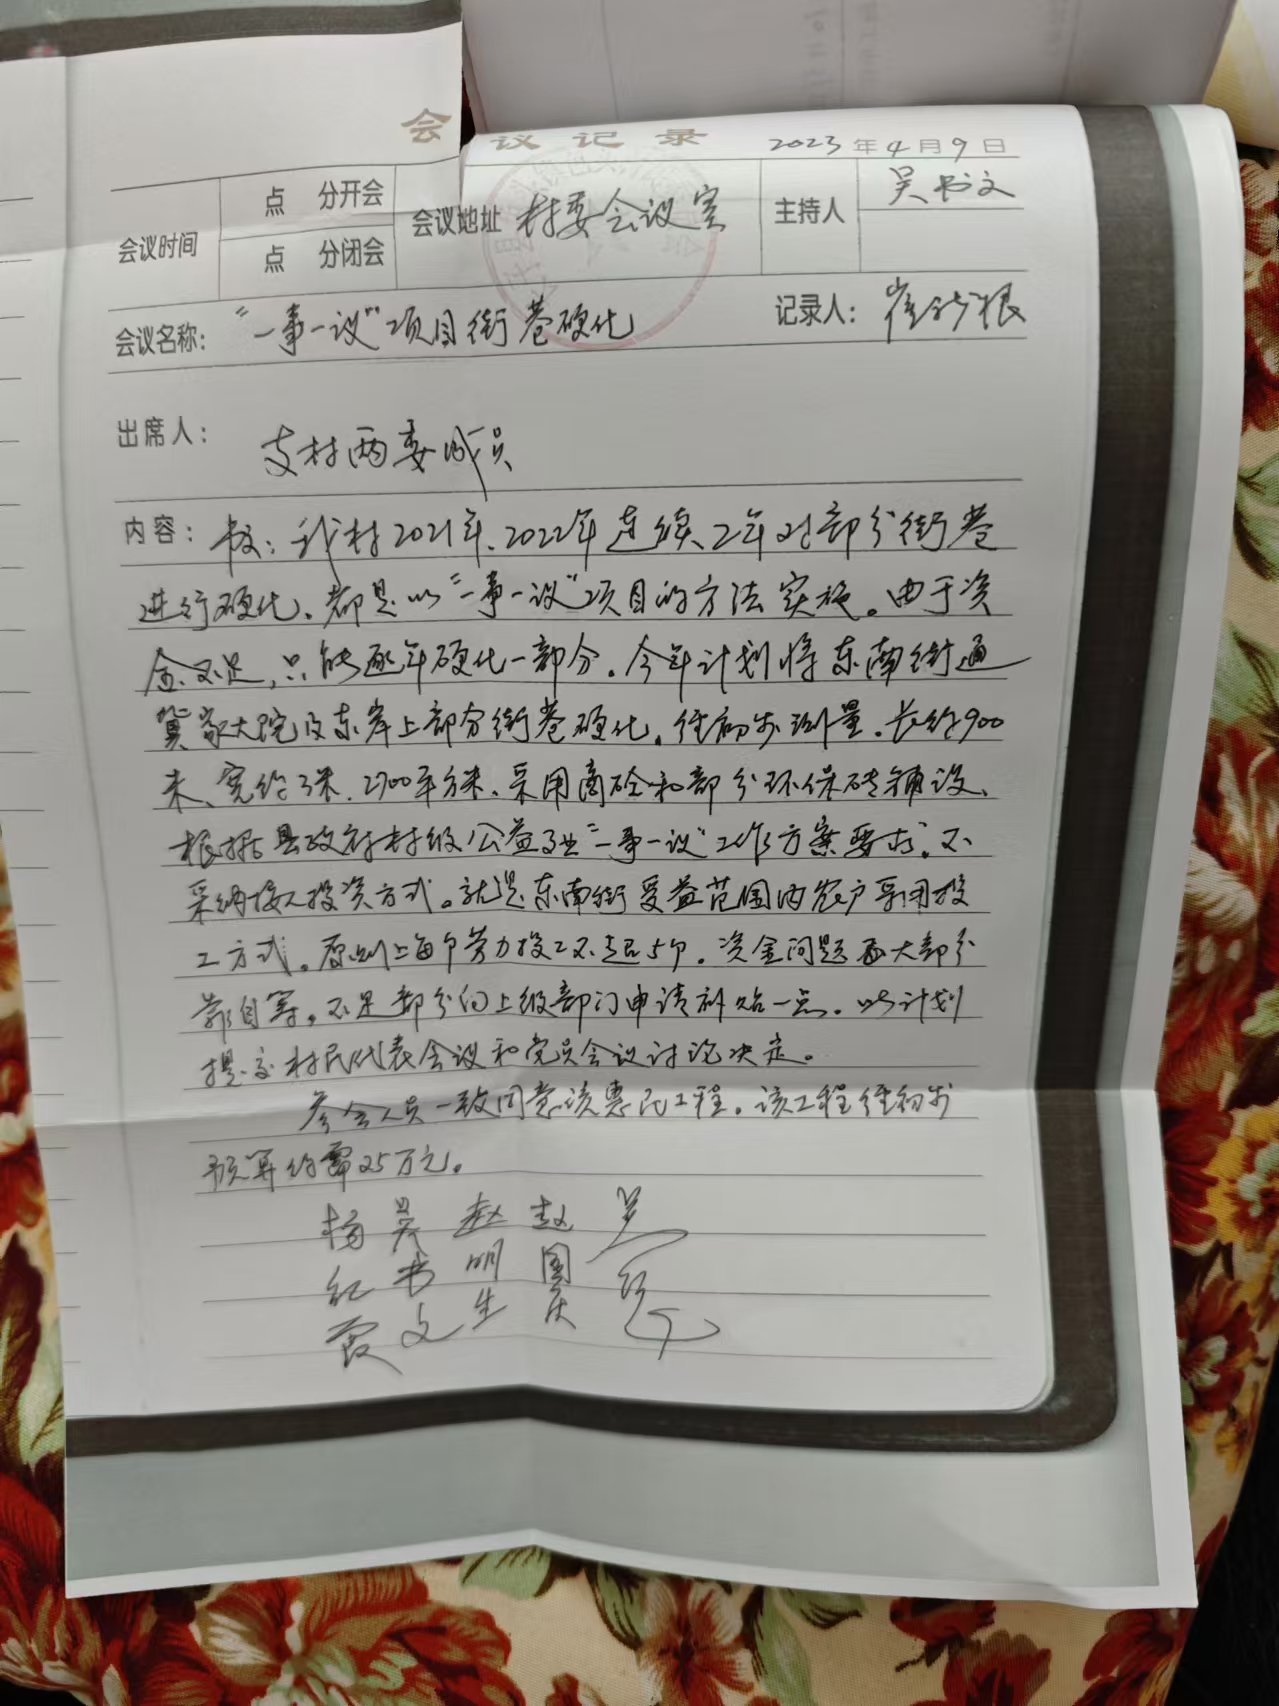 会议记录 2023年4月9日
会议时间 点 分开会 会议地址 村委会议室 主持人 吴书文
点 分闭会
会议名称: "一事一议"项目街巷硬化 记录人: 崔 根
出席人: 支村两委成员
内容: 我村2021年、2022年连续2年对部分街巷
进行硬化、都是以"一事一议"项目的方法实施。由于资
金不足,只能逐年硬化一部分。今年计划将东南街通
冀家大院及东岸上部分街巷硬化。经初步测量。长约900
米、宽约3米.2700平方米、采用商砼和部分环保砖铺设、
根据县政府村级公益事业"一事一议"工作方案要求。不
采纳按人投资方式。就是东南街受益范围内农户采用投
工方式。原则上每个劳力投工不超5个。资金问题 大部分
靠自筹。不足部分向上级部门申请补贴一点。以计划
提交村民代表会议和党员会议讨论决定。
参会人员一致同意该惠民工程。该工程经初步
预算约需25万元。
杨 吴 赵 赵 吴
红 书 明 国
霞 文 生 庆